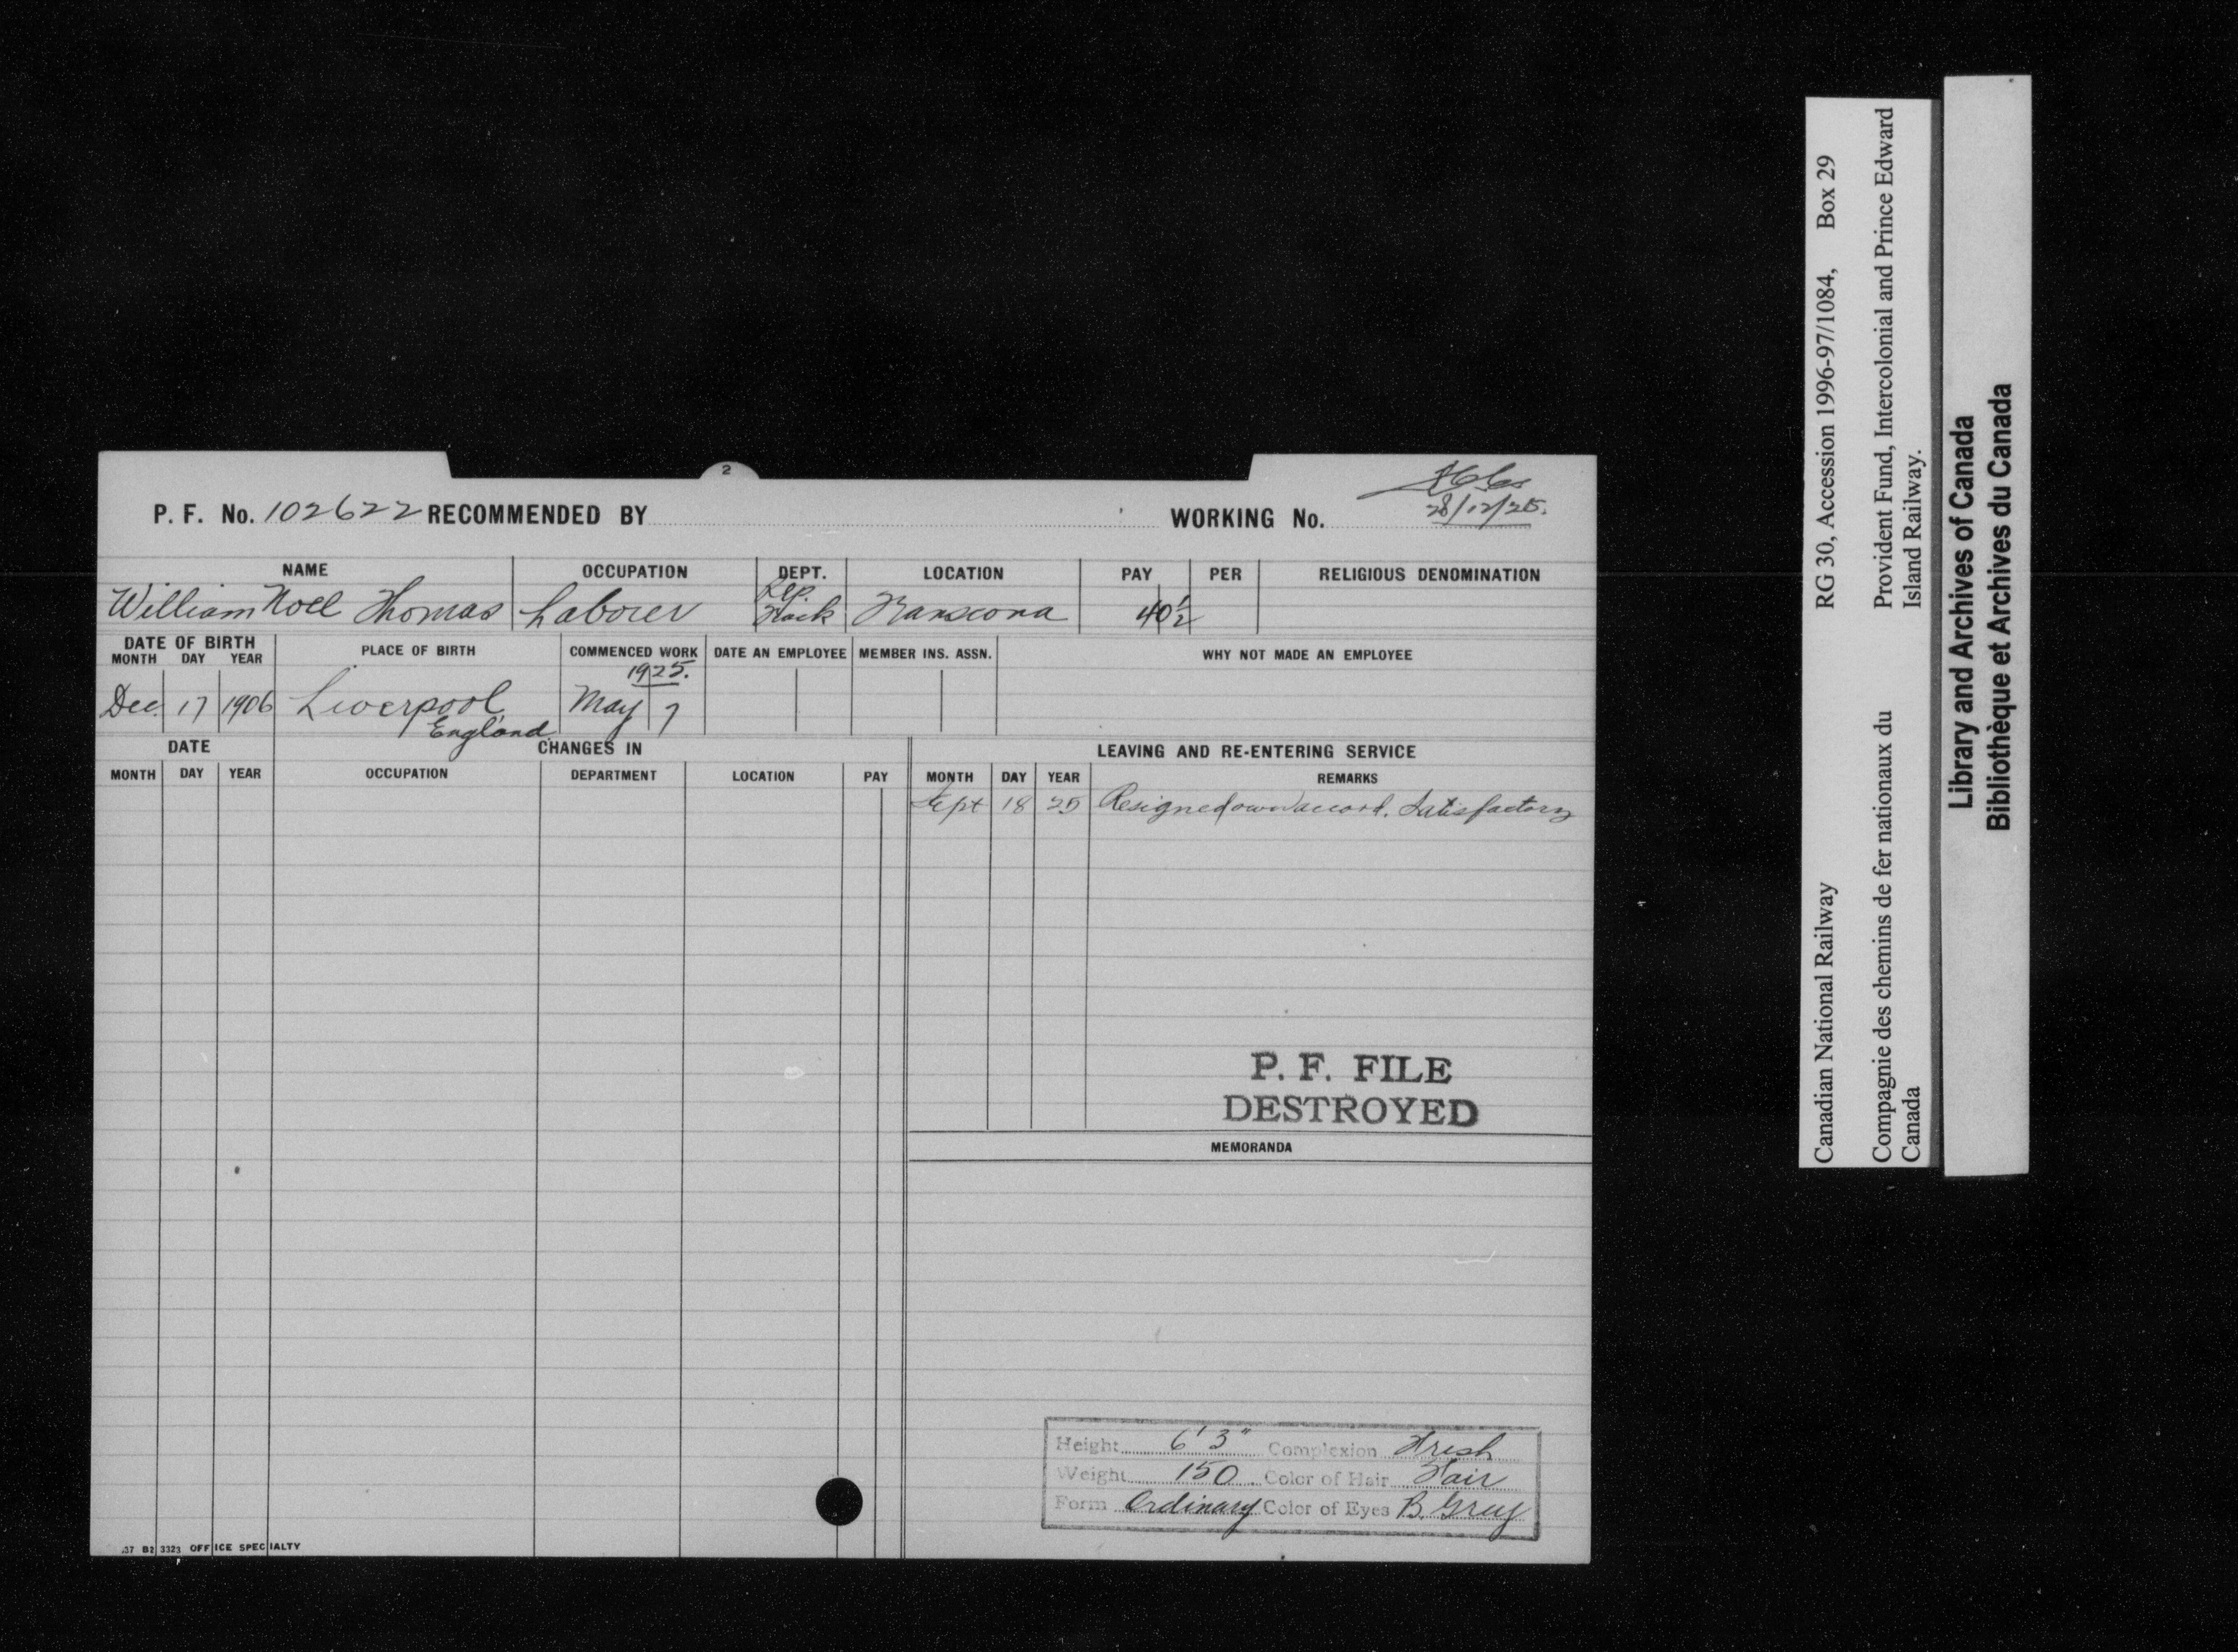 2
28/12/25.
P. F. No. 102622 RECOMMENDED BY WORKING No.
NAME OCCUPATION DEPT. LOCATION PAY PER RELIGIOUS DENOMINATION
William Noel Thomas Laborer Rep. Track Transcona 40½
DATE OF BIRTH PLACE OF BIRTH COMMENCED WORK DATE AN EMPLOYEE MEMBER INS. ASSN. WHY NOT MADE AN EMPLOYEE
MONTH DAY YEAR
1925.
Dec. 17 1906 Liverpool May 7
England
DATE CHANGES IN LEAVING AND RE-ENTERING SERVICE
MONTH DAY YEAR OCCUPATION DEPARTMENT LOCATION PAY MONTH DAY YEAR REMARKS
Sept 18 25 Resigned own accord. Satisfactory
P. F. FILE
DESTROYED
MEMORANDA
Height 6'3" Complexion Fresh
Weight 150 Color of Hair Fair
Form Ordinary Color of Eyes B. Grey
37 B2 3323 OFFICE SPECIALTY
Canadian National Railway RG 30, Accession 1996-97/1084, Box 29
Compagnie des chemins de fer nationaux du Provident Fund, Intercolonial and Prince Edward
Canada Island Railway.
Library and Archives of Canada
Bibliothèque et Archives du Canada